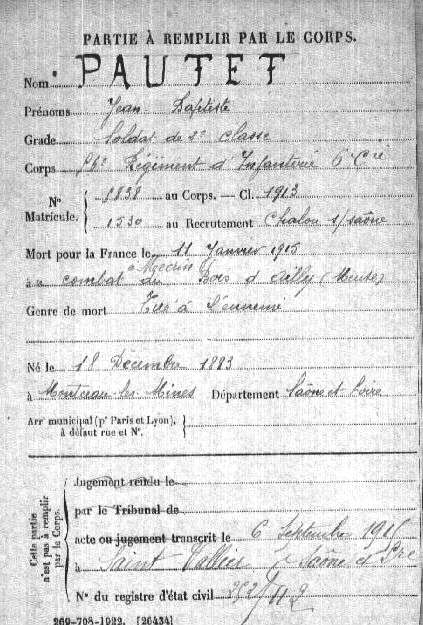 PARTIE À REMPLIR PAR LE CORPS.
Nom PAUTET
Prénoms Jean Baptiste
Grade Soldat de 2e classe
Corps Régiment d'Infanterie 6 Cie
N° Matricule. 8838 au Corps. — Cl. 1913
1530 au Recrutement Chalon s/ saône
Mort pour la France le 11 Janvier 1915
à combat du Bois d'Ailly (Meuse)
Genre de mort Tué à l'ennemi
Né le 18 Décembre 1893
à Montceau-les-Mines Département Saône et Loire
Arr municipal (pr Paris et Lyon), à défaut rue et N°.
Cette partie n'est pas à remplir par le Corps.
Jugement rendu le
par le Tribunal de
acte ou jugement transcrit le 6 Septembre
à Saint Vallier Saône et
N° du registre d'état civil
269-708-1922. [26434]